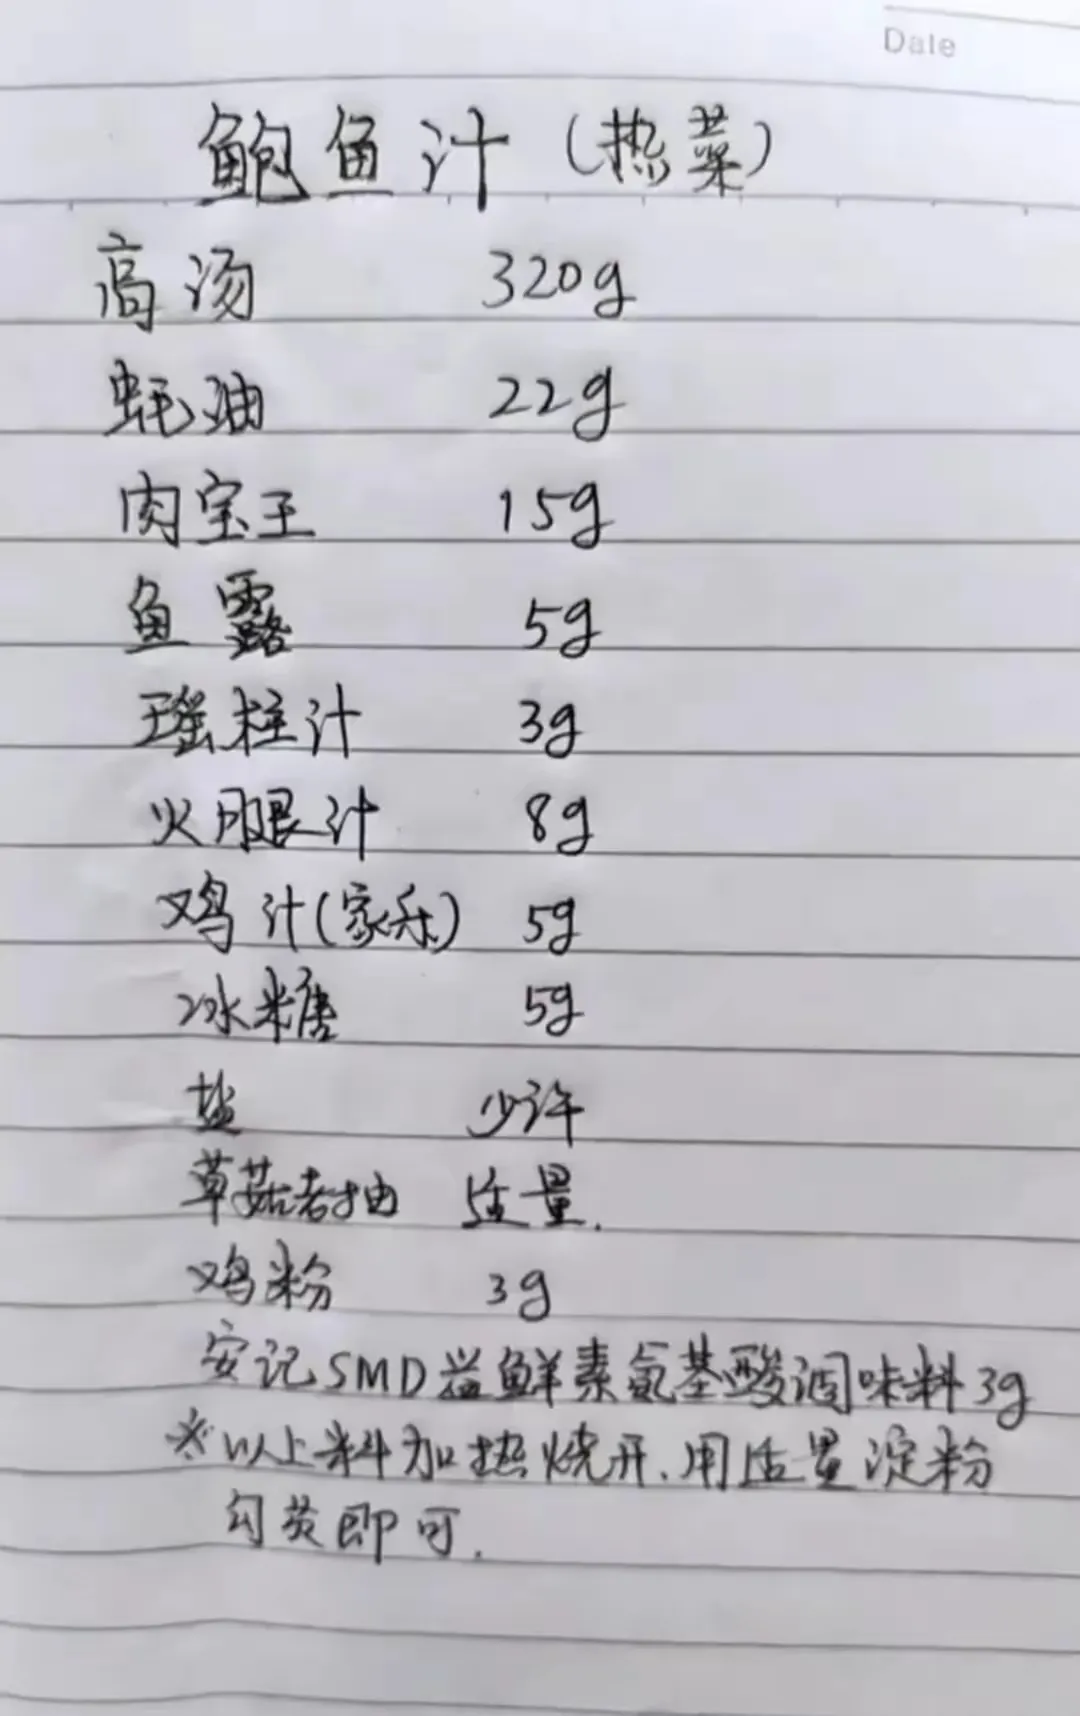 Date
鲍鱼汁(热菜)
高汤 320g
蚝油 22g
肉宝王 15g
鱼露 5g
瑶柱汁 3g
火腿汁 8g
鸡汁(家乐) 5g
冰糖 5g
盐 少许
草菇老抽 适量.
鸡粉 3g
安记SMD益鲜素氨基酸调味料3g
※以上料加热烧开、用适量淀粉
勾芡即可.